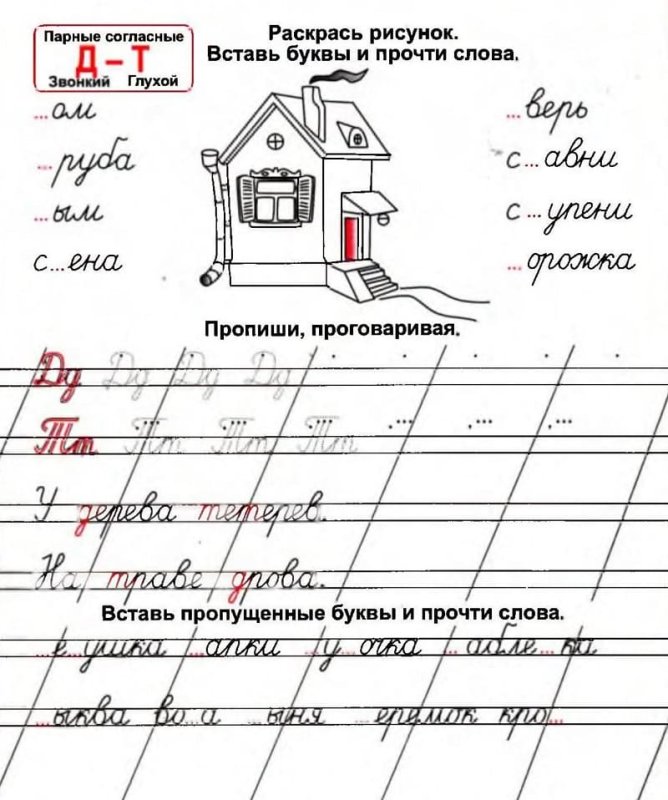 Парные согласные
Д – Т
Звонкий Глухой
Раскрась рисунок.
Вставь буквы и прочти слова.
...ом
...руба
...ым
с...ена
...верь
с...авни
с...упени
...орожка
Пропиши, проговаривая.
Дд Дд Дд Дд
Тт Тт Тт Тт
У дерева тетерев.
На траве дрова.
Вставь пропущенные буквы и прочти слова.
...е...ушка ...апки у...очка ...абле...ка
...ыква во...а ...ыня ...еремок кро...